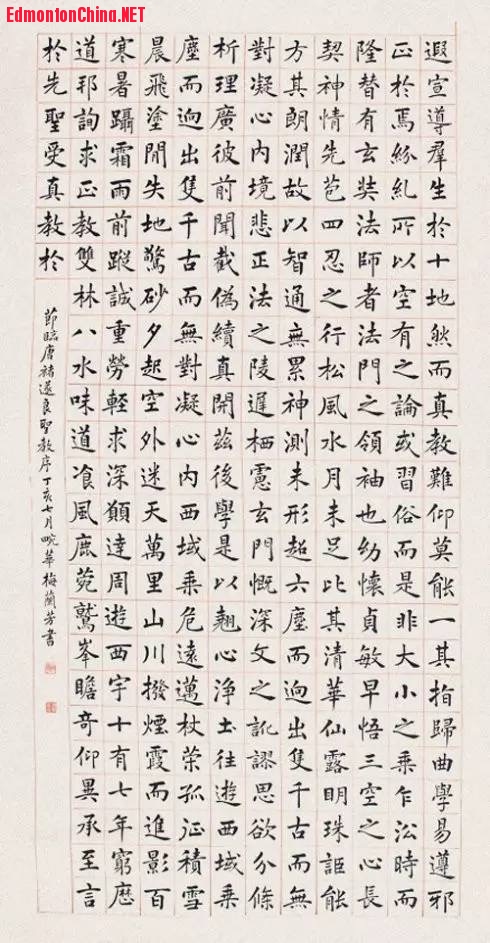 EdmontonChina.NET
遐宣導羣生於十地然而真教難仰莫能一其指歸曲學易遵邪
正於焉紛糺所以空有之論或習俗而是非大小之乘乍沿時而
隆替有玄奘法師者法門之領袖也幼懷貞敏早悟三空之心長
契神情先苞四忍之行松風水月未足比其清華仙露明珠詎能
方其朗潤故以智通無累神測未形超六塵而逈出隻千古而無
對凝心內境悲正法之陵遲栖慮玄門慨深文之訛謬思欲分條
析理廣彼前聞截偽續真開茲後學是以翹心淨土往遊西域乘
塵而逈出隻千古而無對凝心內西域乘危遠邁杖策孤征積雪
晨飛塗閒失地驚砂夕起空外迷天萬里山川撥煙霞而進影百
寒暑躡霜雨前蹤誠重勞輕求深願達周遊西宇十有七年窮歷
道邦詢求正教雙林八水味道飡風鹿菀鷲峯瞻奇仰異承至言
於先聖受真教於
節臨唐褚遂良聖教序丁亥七月畹華梅蘭芳書